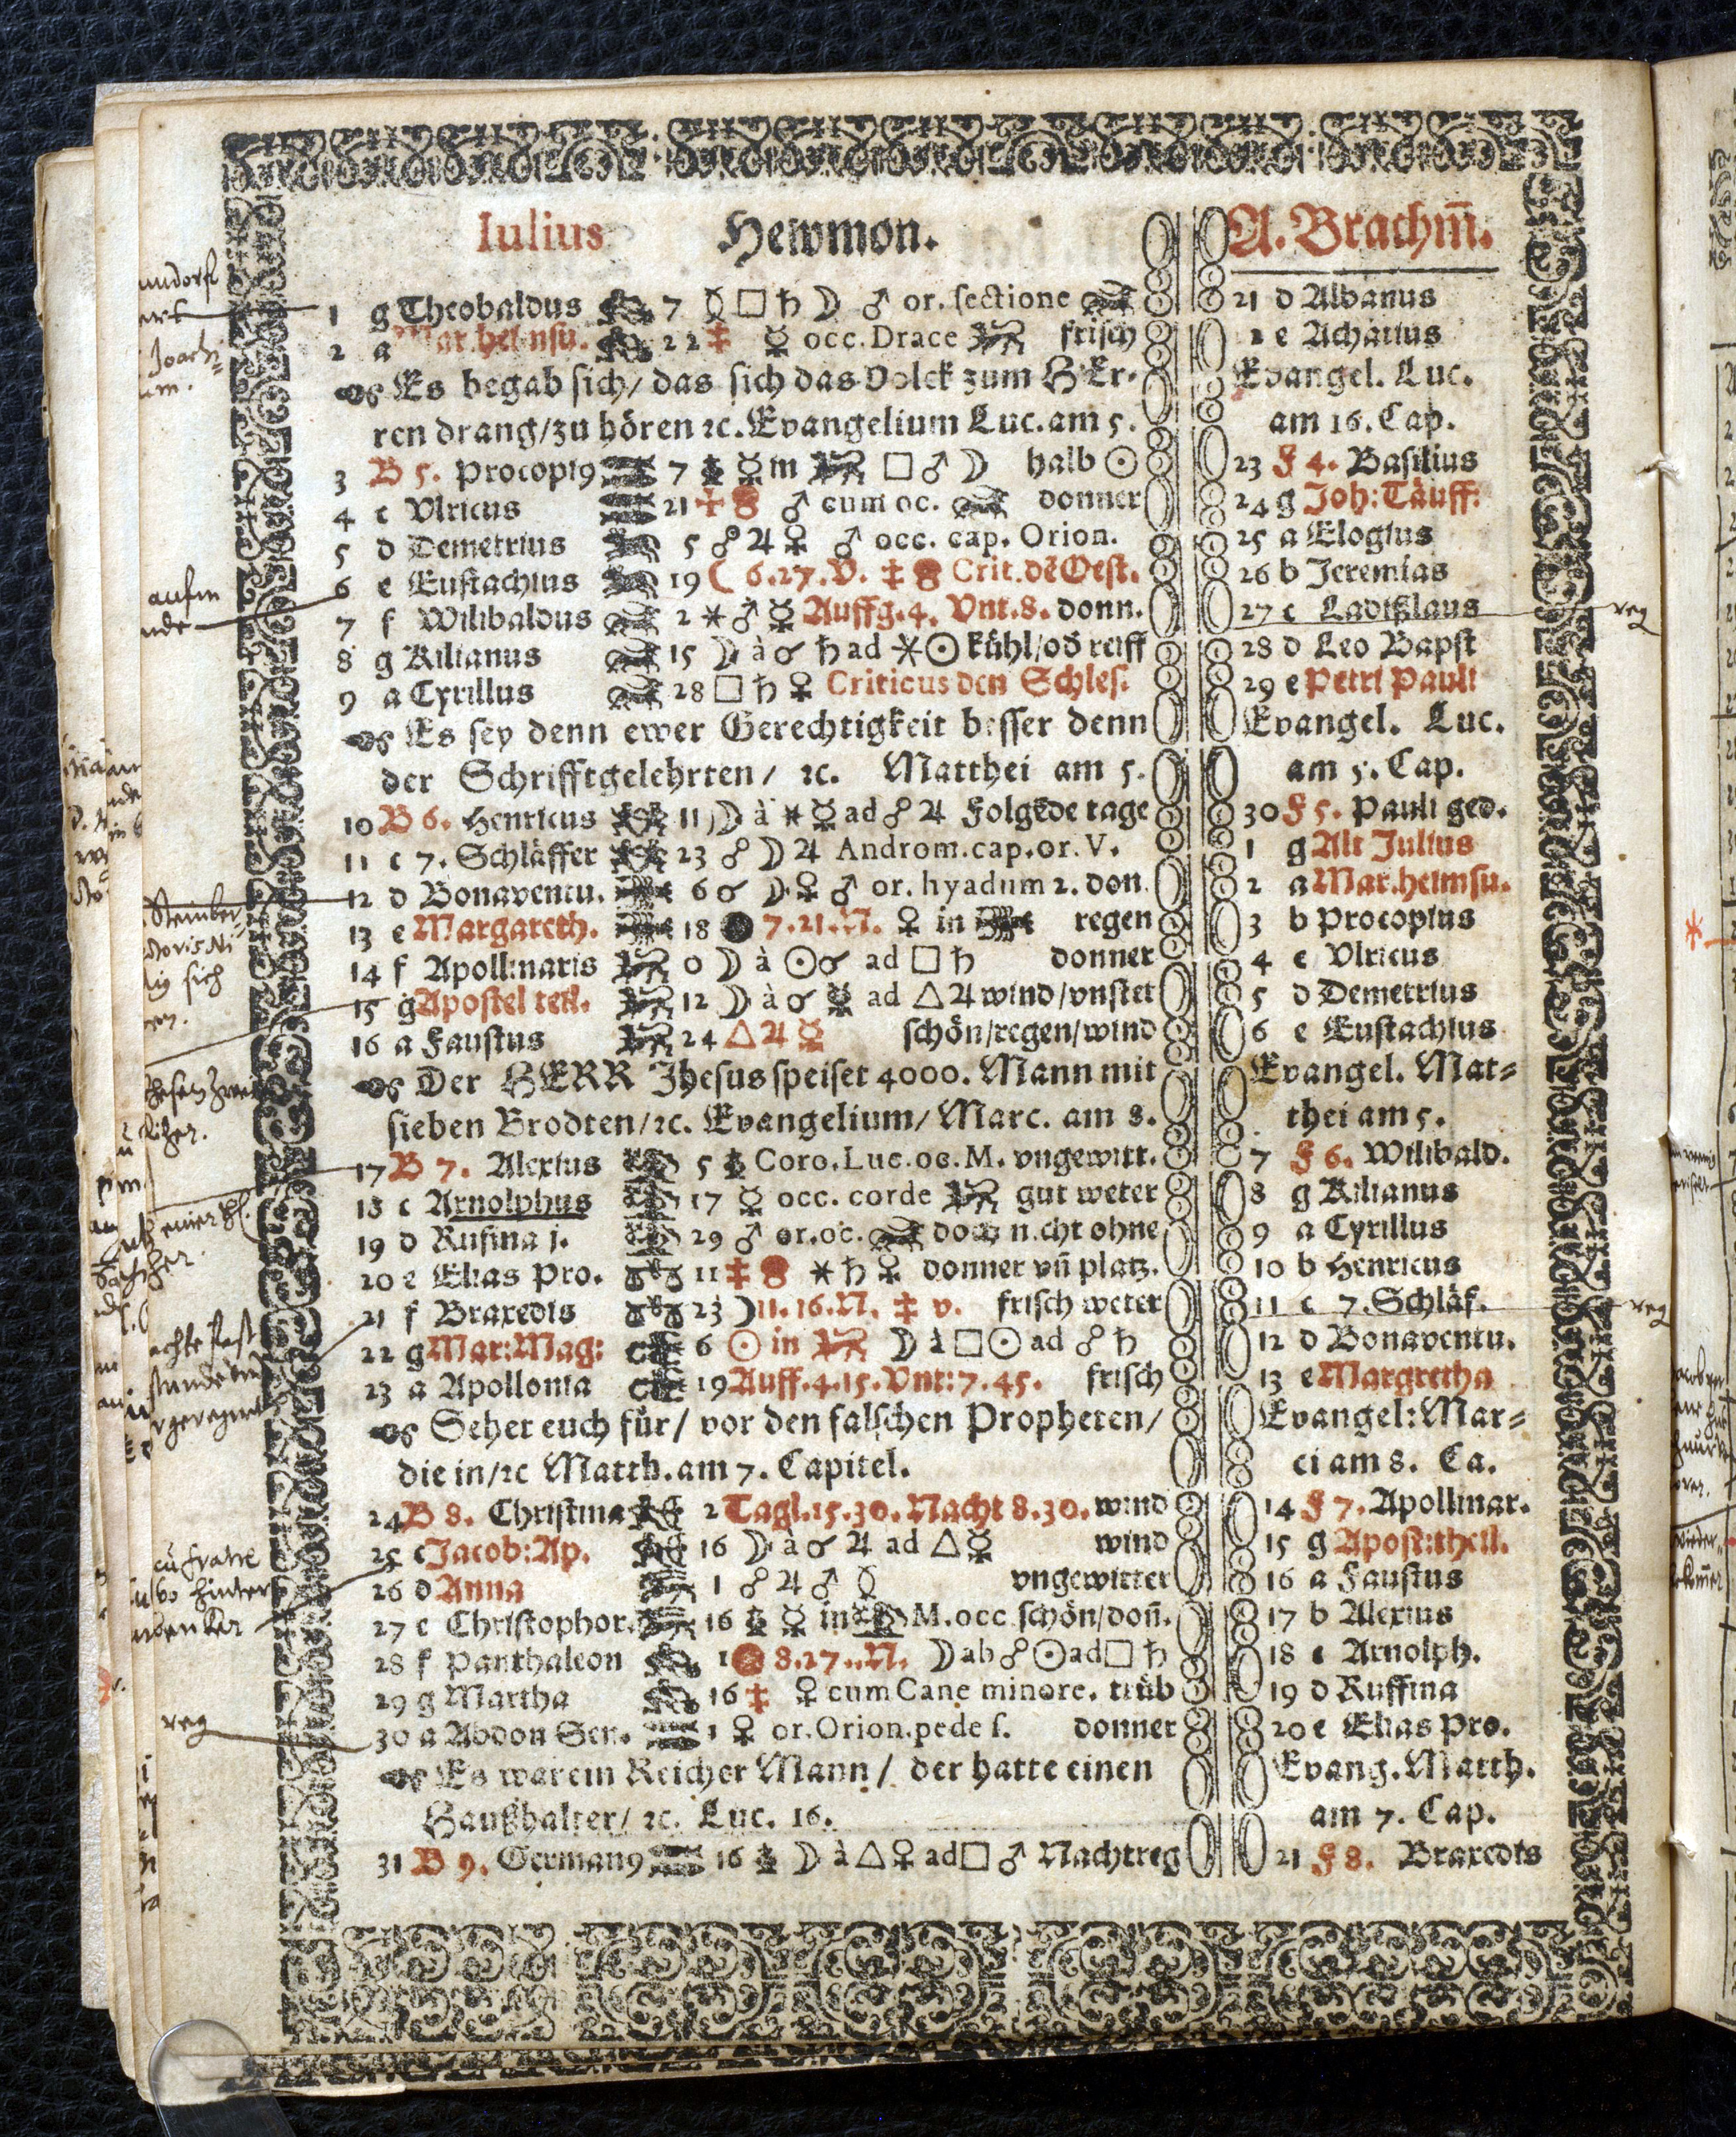 Iulius Hewmon. A. Brachm̄.
1 g Theobaldus 7 ☿ □ ♄ ☽ ♂ or. sectione 21 d Albanus
2 a Mar. heimsu. 22 ‡ ☿ occ. Drace frisch 2 e Achatius
Es begab sich/ das sich das Volck zum HEr- Evangel. Luc.
ren drang/zu hören ꝛc. Evangelium Luc. am 5. am 16. Cap.
3 B 5. Procopi9 7 ☿ in □ ♂ ☽ halb ☉ 23 F 4. Basilius
4 c Vlricus 21 ♂ cum oc. donner 24 g Joh: Täuff:
5 d Demetrius 5 ☍ ♃ ♀ ♂ occ. cap. Orion. 25 a Elogius
6 e Eustachius 19 ☾ 6.27.V. ‡ Crit. dē Oest. 26 b Jeremias
7 f Wilibaldus 2 ⚹ ♂ ☿ Auffg. 4. Vnt. 8. donn. 27 c Ladißlaus reg
8 g Kilianus 15 ☽ à ☌ ♄ ad ⚹ ☉ kühl/od̄ reiff 28 d Leo Bapst
9 a Cyrillus 28 □ ♄ ♀ Criticus den Schles. 29 e Petri Pauli
Es sey denn ewer Gerechtigkeit besser denn Evangel. Luc.
der Schrifftgelehrten/ ꝛc. Matthei am 5. am 5. Cap.
10 B 6. Henricus 11 ☽ à ⚹ ☿ ad ☍ ♃ Folgēde tage 30 F 5. Pauli ged.
11 c 7. Schläffer 23 ☍ ☽ ♃ Androm. cap. or. V. 1 g Alt Julius
12 d Bonaventu. 6 ☌ ☽ ♀ ♂ or. hyadum 2. don. 2 a Mar. heimsu.
13 e Margareth. 18 ● 7.21.N. ♀ in regen 3 b Procopius
14 f Apollinaris 0 ☽ à ☉ ☌ ad □ ♄ donner 4 c Vlricus
15 g Apostel teil. 12 ☽ à ☌ ☿ ad △ ♃ wind/vnstet 5 d Demetrius
16 a Faustus 24 △ ♃ ☿ schön/regen/wind 6 e Eustachius
Der HERR Jhesus speiset 4000. Mann mit Evangel. Mat-
sieben Brodten/ꝛc. Evangelium/ Marc. am 8. thei am 5.
17 B 7. Alexius 5 Coro. Luc. oc. M. vngewitt. 7 F 6. Wilibald.
18 c Arnolphus 17 ☿ occ. corde gut weter 8 g Kilianus
19 d Rufina j. 29 ♂ or. oc. doch nicht ohne 9 a Cyrillus
20 e Elias Pro. 11 ‡ ⚹ ♄ ♀ donner vn̄ platz. 10 b Henricus
21 f Braxedis 23 ☽ 11.16.N. ‡ v. frisch weter 11 c 7. Schläf. reg
22 g Mar: Mag: 6 ☉ in ☽ à □ ☉ ad ☍ ♄ 12 d Bonaventu.
23 a Apollonia 19 Auff. 4.15. Vnt: 7.45. frisch 13 e Margretha
Sehet euch für/ vor den falschen Propheten/ Evangel: Mar-
die in/ꝛc Matth. am 7. Capitel. ci am 8. Ca.
24 B 8. Christina 2 Tagl. 15.30. Nacht 8.30. wind 14 F 7. Apollinar.
25 c Jacob: Ap. 16 ☽ à ☌ ♃ ad △ ☿ wind 15 g Apost: theil.
26 d Anna 1 ☍ ♃ ♂ ☿ vngewitter 16 a Faustus
27 e Christophor. 16 ☿ in M. occ. schön/don̄. 17 b Alexius
28 f Panthaleon 1 8.27.N. ☽ ab ☍ ☉ ad □ ♄ 18 c Arnolph.
29 g Martha 16 ‡ ♀ cum Cane minore. trüb 19 d Ruffina
reg 30 a Abdon Sen. 1 ♀ or. Orion. pede s. donner 20 e Elias Pro.
Es war ein Reicher Mann/ der hatte einen Evang. Matth.
Haußhalter/ ꝛc. Luc. 16. am 7. Cap.
31 B 9. German9 16 ☽ à △ ♀ ad □ ♂ Nachtreg 21 F 8. Braxedis